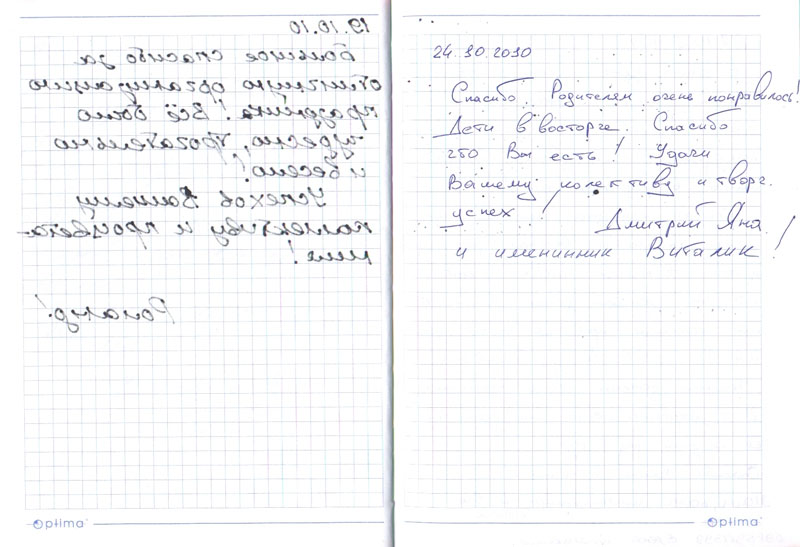 19.10.10
Большое спасибо за
отличную организацию
праздника! Всё было
чудесно, трогательно
и весело!
Успехов Вашему
коллективу и процвета-
ния!
Роланд!
Optima
24.10.2010
Спасибо. Родителям очень понравилось!
Дети в восторге. Спасибо
что Вы есть! Удачи
Вашему колективу и творч.
успех! Дмитрий Яна!
и именинник Виталик!
Optima